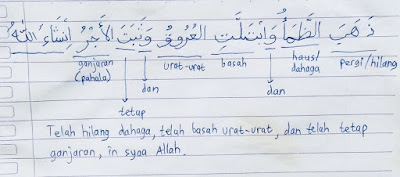 ذَهَبَ الظَّمَأُ وَابْتَلَّتِ العُرُوقُ وَثَبَتَ الأَجْرُ إِنْشَاءَ اللهُ
ganjaran (pahala) urat-urat basah haus/dahaga pergi/hilang
dan dan
tetap
Telah hilang dahaga, telah basah urat-urat, dan telah tetap
ganjaran, in syaa Allah.